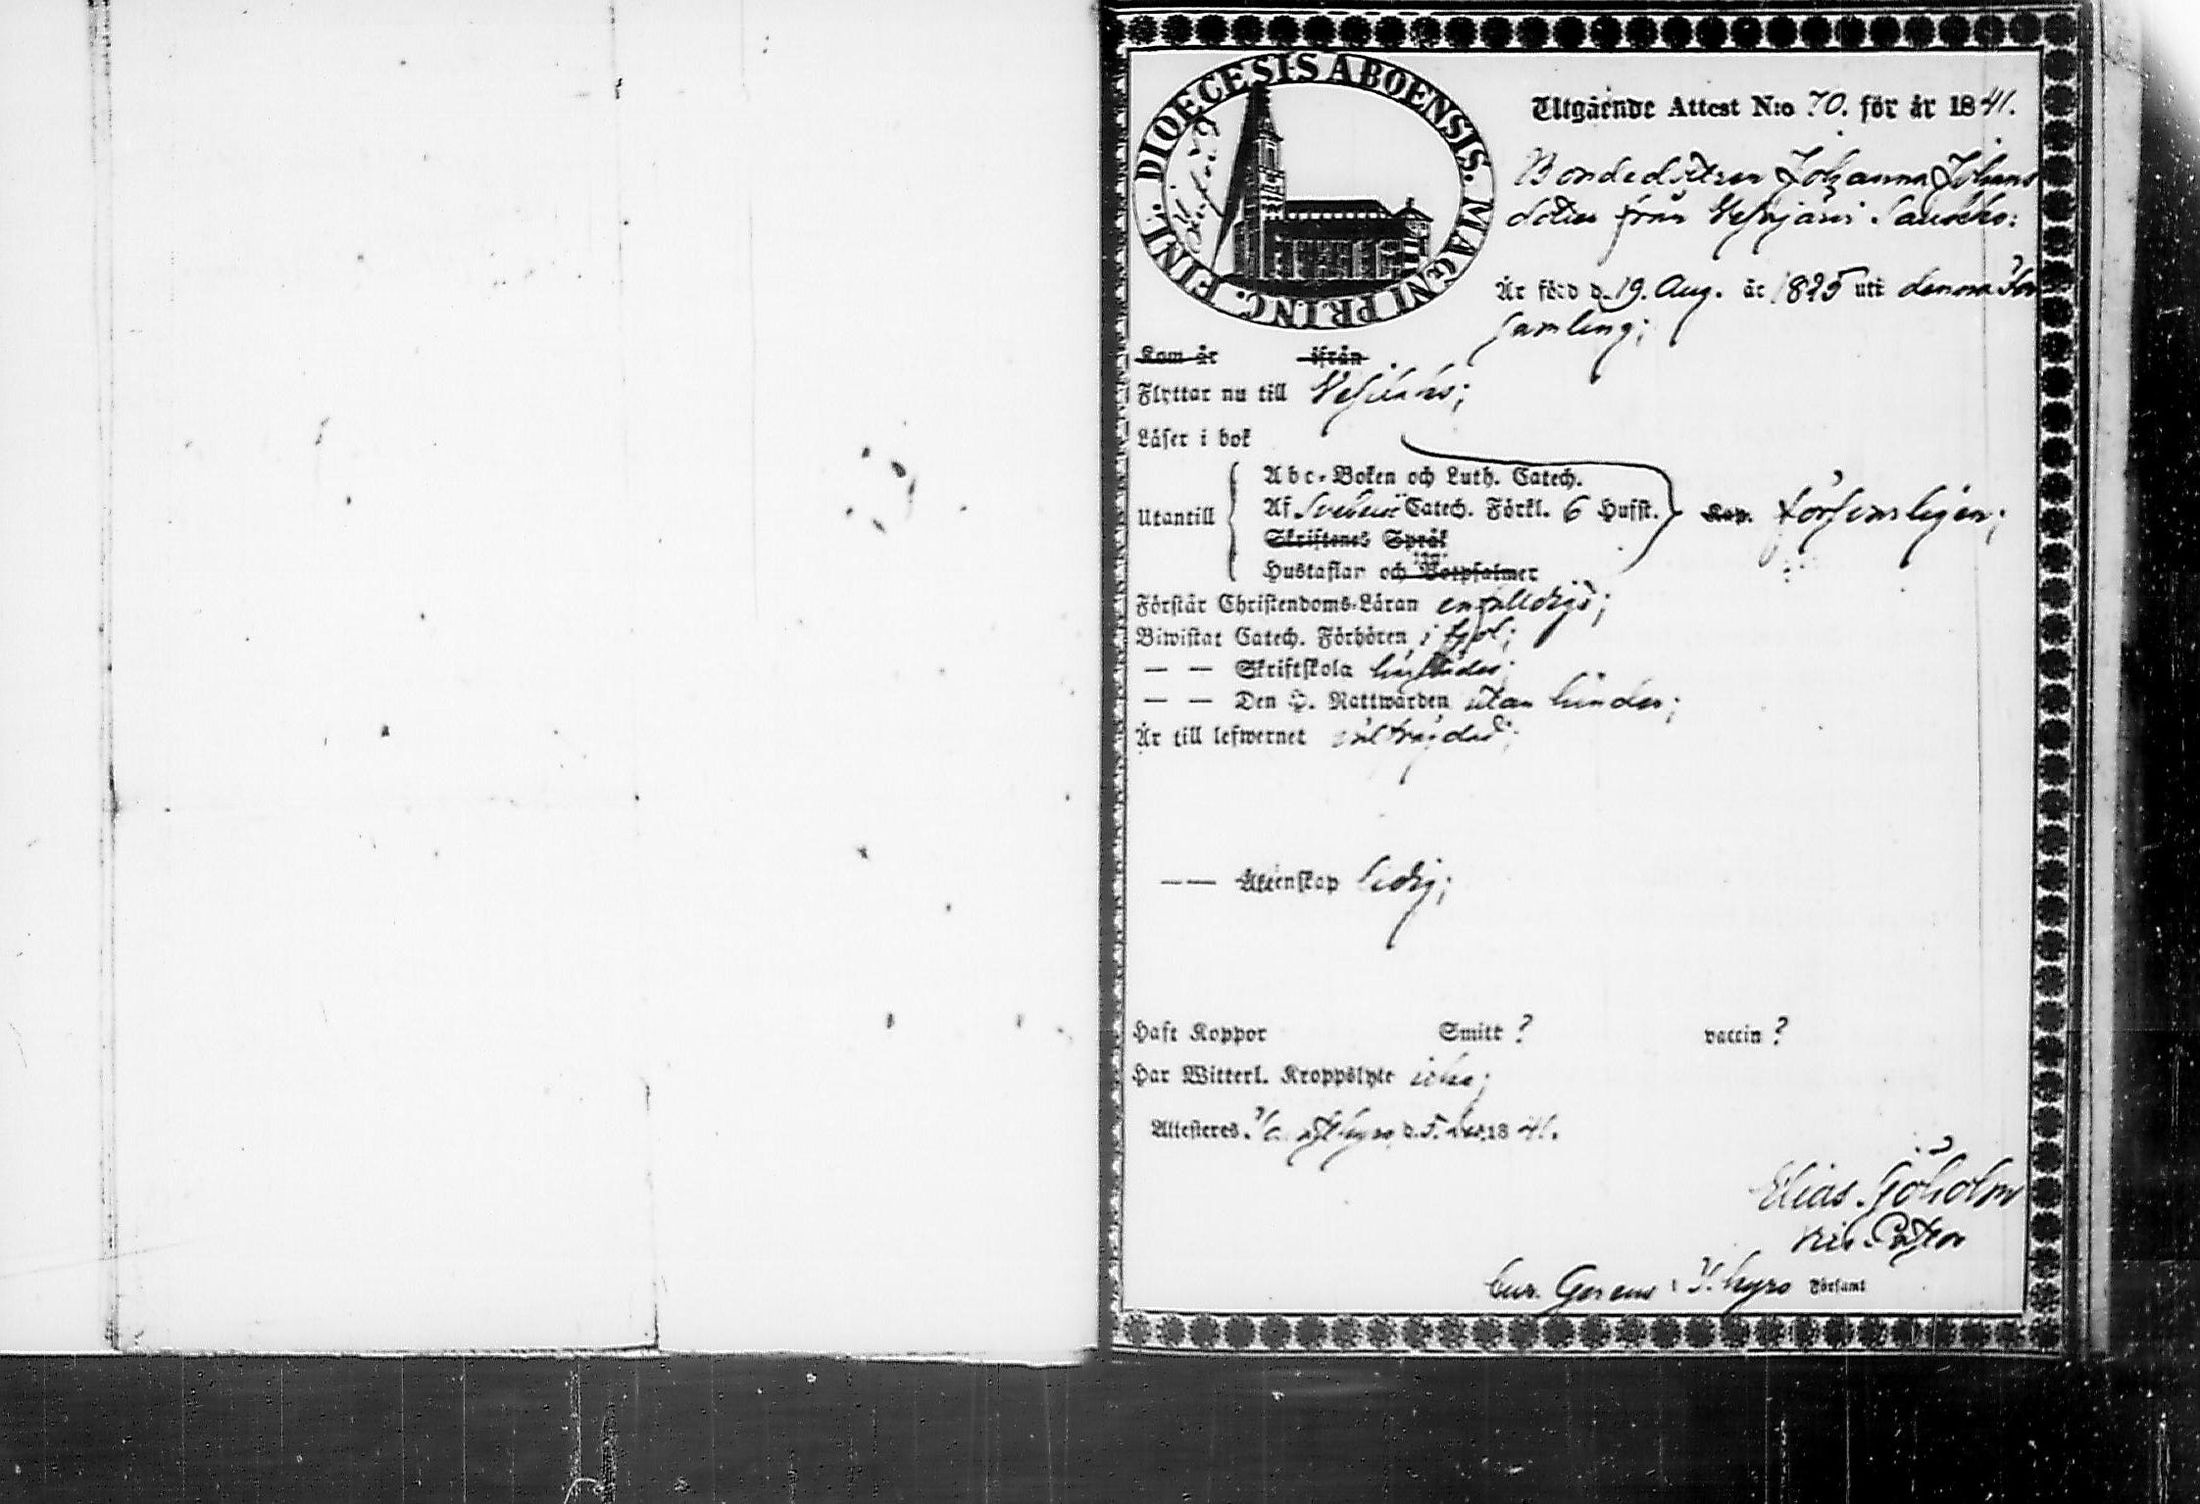 DIOECESIS ABOENSIS. MAGNI PRINC. FINL.
Utgående Attest N:o 70. för år 1841.
Bondedottren Johanna Johans
dotter från Vesajärvi
Är född d. 19. Aug. år 1825 uti denna För
samling;
Kom år ifrån
Flyttar nu till
Läser i bok
Abc-Boken och Luth. Catech.
Utantill Af Svebelii Catech. Förkl. 6 Hufst. Kap. försvarligen;
Skriftenes Språk
Hustaflan och Botpsalmer
Förstår Christendoms-Läran enfaldigt;
Biwistat Catech. Förhören i fjol;
— — Skriftskola
— — Den H. Nattwarden utan hinder;
Är till lefwernet
—— Äktenskap ledig;
Haft Koppor Smitt ? vaccin ?
Har Witterl. Kroppslyte icke;
Attesteras d. 5. 1841.
Elias Sjöholm
Vice Pastor
Cur. Gerens i I. kyro Församl